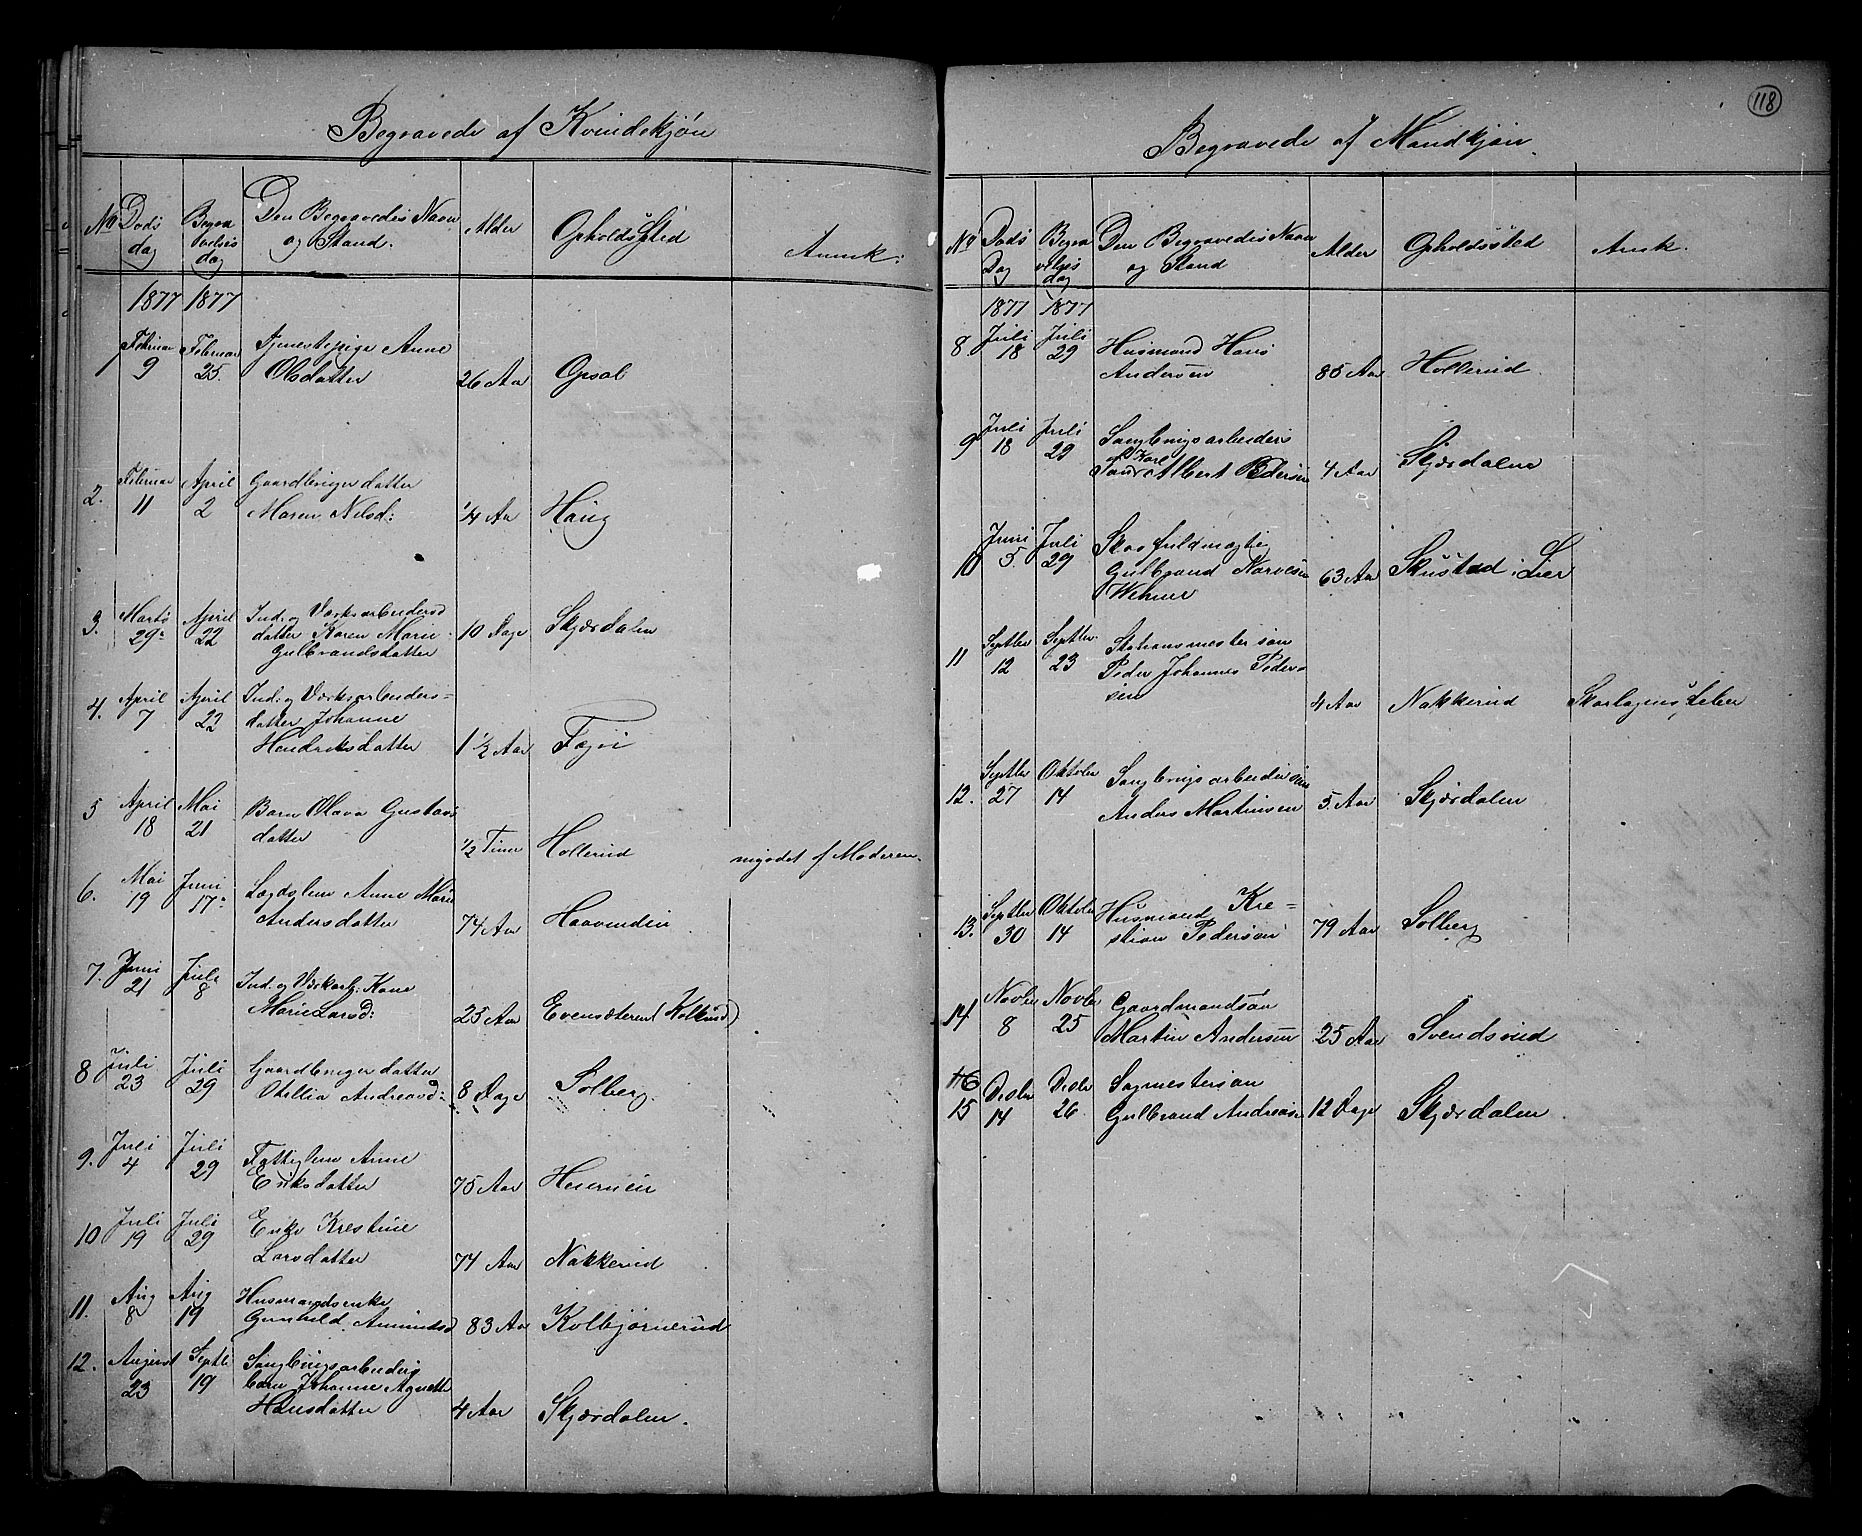 118
Begravede af Kvindekjøn
No Døds dag Begravelses dag Den Begravedes Navn og Stand. Alder Opholds Sted Anmk:
1877 1877
1 Februar 9 Februar 25. Tjenestepige Anne
Olsdatter 26 Aar Opsal
2. Februar 11 April 2 Gaardbruger datter
Maren Nilsd: 1/4 Aar Haug
3. Marts 29 April 22 Ind. og Værksarbeiders
datter Karen Marie
Gulbrandsdatter 10 Dage Skjærdalen
4. April 7 April 22 Ind. og Værksarbeiders=
datter Johanne
Hendriksdatter 1 1/2 Aar
5 April 18 Mai 21 Barn Olava Gustavs
datter 1/2 Time Hollerud af Moderen.
6. Mai 19 Juni 17 Lægdslem Anne Marie
Andersdatter 74 Aar
7. Juni 21 Juli 8 Ind. og Værkarb: Kone
Marie Larsd: 25 Aar
8 Juli 23 Juli 29 Gaardbruger datter
Othillia Andreasd: 8 Dage Solberg.
9. Juli 4 Juli 29 Fattiglem Anne
Eriksdatter 75 Aar
10 Juli 19 Juli 29 Enke Krestine
Larsdatter 74 Aar Nakkerud
11. Aug 8 Aug 19 Husmandsenke
Gunhild Amundsd 83 Aar Kolbjørnerud
12. August 23 Septb 19 Sagbrugsarbeiders
barn Johanne Agnethe
Hansdatter 4 Aar Skjærdalen.
Begravede af Mandkjøn.
No Døds Dag Begravelses dag Den Begravedes Navn og Stand Alder Opholdssted Anmk.
1877 1877
8. Juli 18 Juli 29 Husmand Hans
Andersen 85 Aar Hollerud.
9 Juli 18 Juli 29 Sagbrugsarbeiders
Karl
Albert Pedersen 4 Aar Skjærdalen
10 Juni 5 Juli 29 Skovfuldmægtig
Gulbrand Narvesen
63 Aar Skustad i Lier
11 Septber 12 Septber 23 Stationsmestersøn
Peder Johannes Peder=
sen 4 Aar Nakkerud Skarlagens feber
12. Septber 27 Oktober 14 Sagbrugsarbeidersøn
Anders Martinsen 5. Aar Skjærdalen
13. Septber 30 Oktober 14 Husmand Kre=
stian Pedersen 79 Aar Solberg
14 Novber 8 Novber 25 Gaardmandsøn
Martin Andersen 25 Aar Svendsrud
15 Decbr 14 Decbr 26 Sagmestersøn
Gulbrand Andreas 12 Dage Skjærdalen